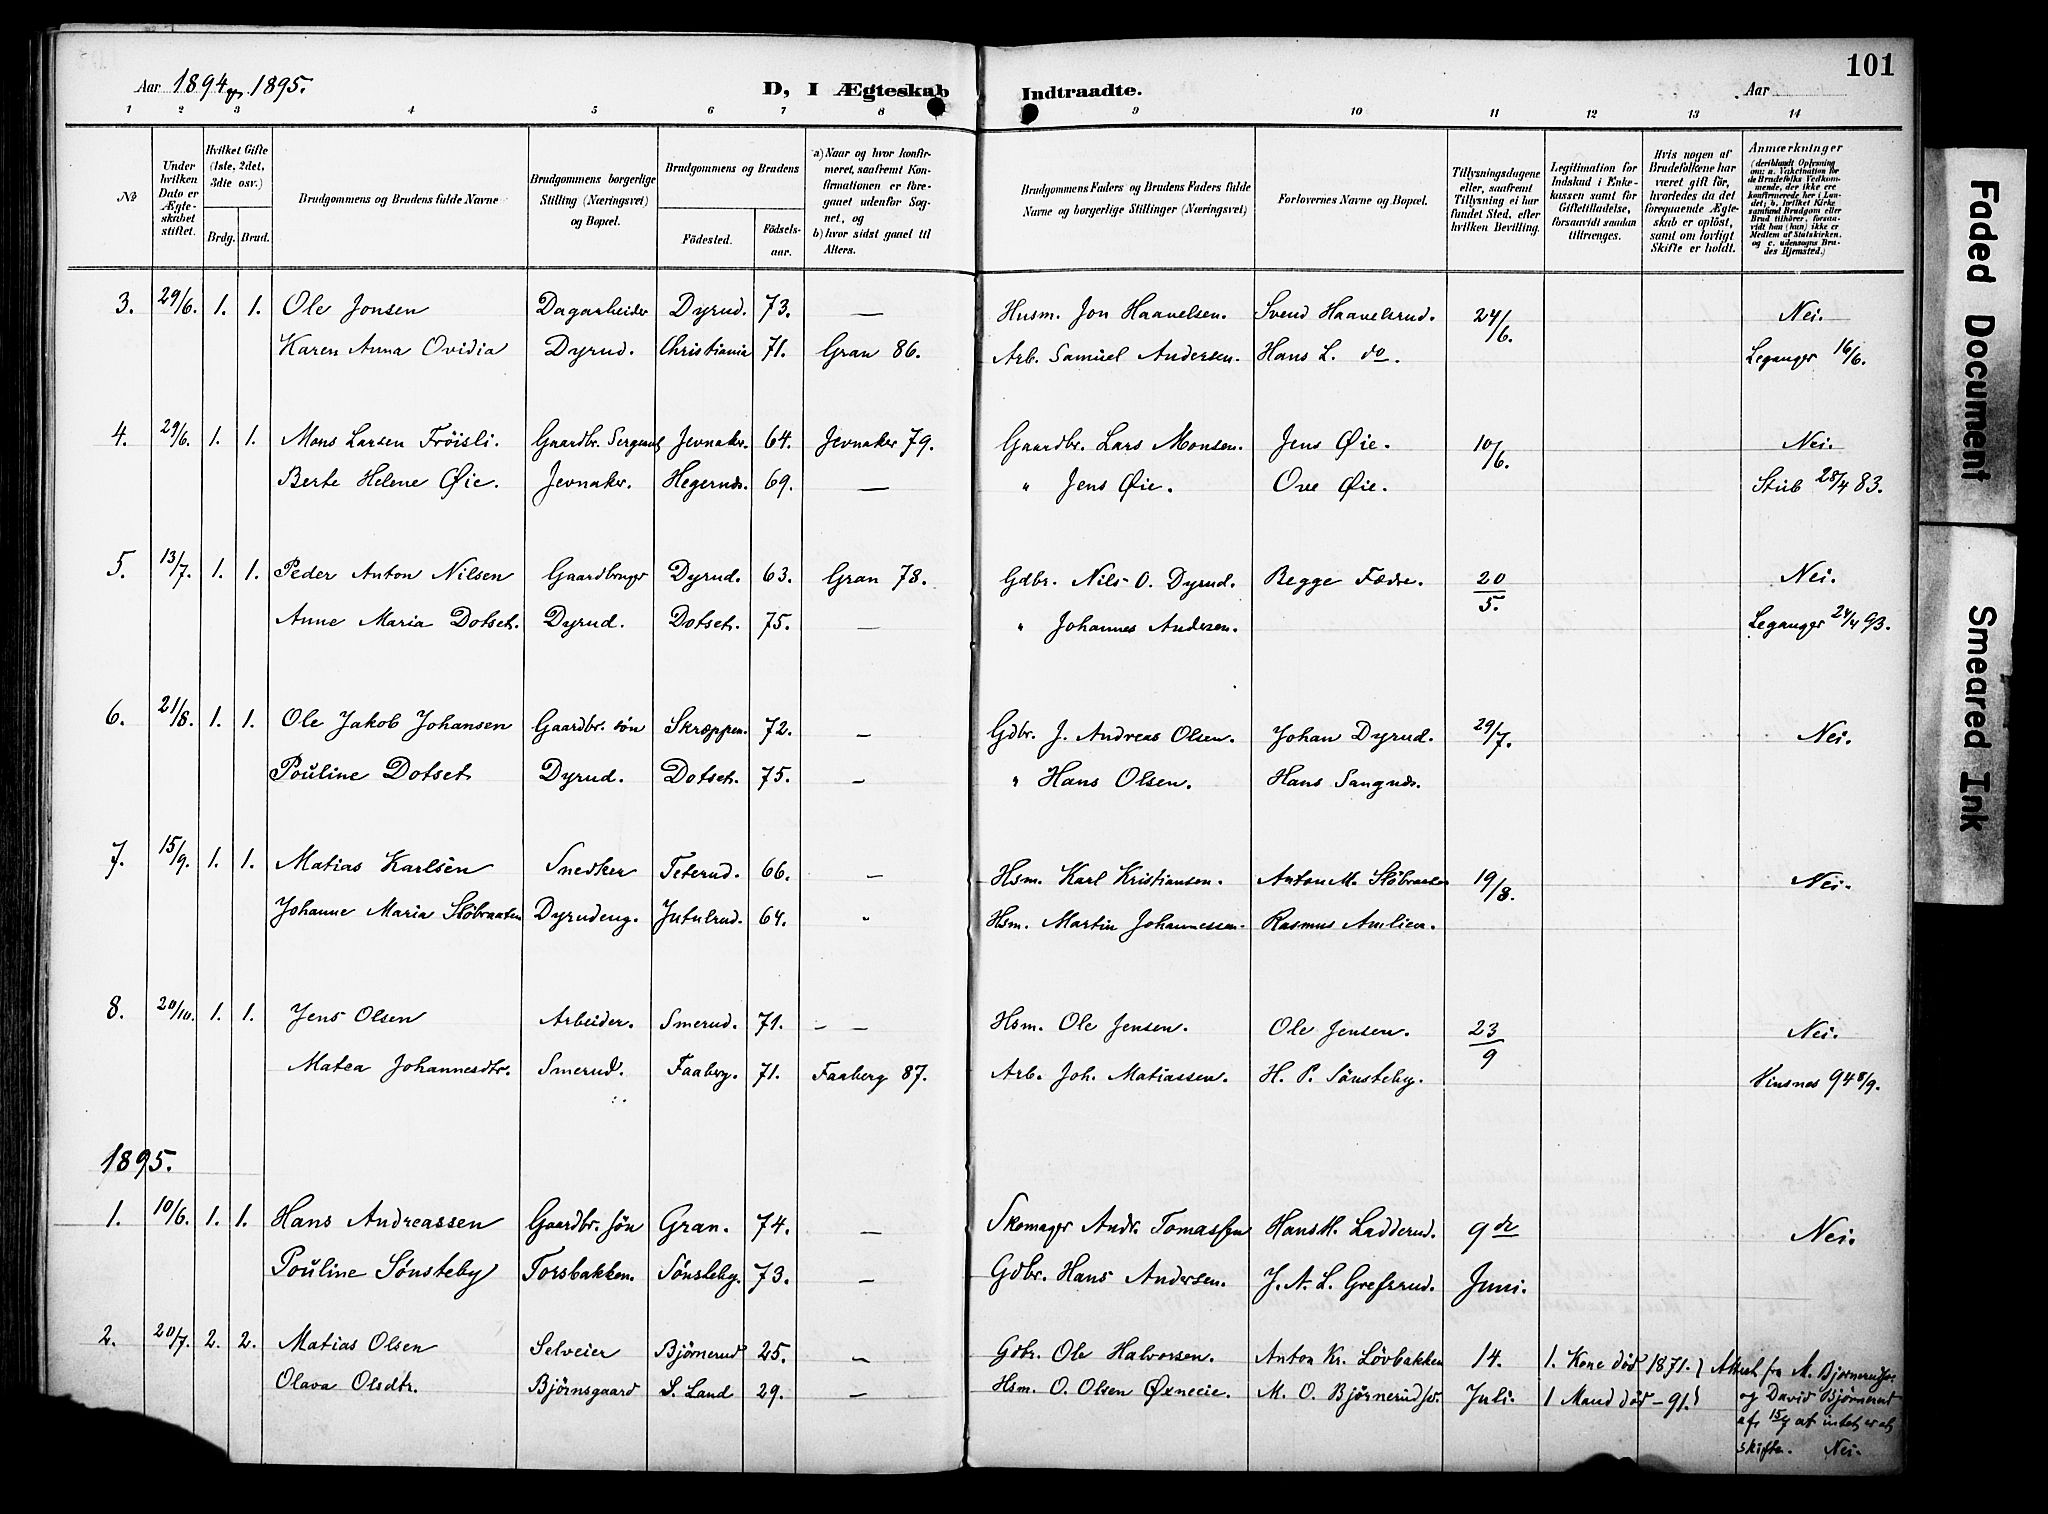 101
Aar 1894 og 1895.
D, I Ægteskab Indtraadte.
Aar
1 2 3 4 5 6 7 8 9 10 11 12 13 14
№
Under hvilken Dato er Ægteskabet stiftet.
Hvilket Gifte (1ste, 2det, 3die osv.)
Brdg. Brud.
Brudgommens og Brudens fulde Navne
Brudgommens borgerlige Stilling (Næringsvei) og Bopæl.
Brudgommens og Brudens
Födested.
Födselsaar.
a) Naar og hvor konfirmeret, saafremt Konfirmationen er foregaaet udenfor Sognet, og
b) hvor sidst gaaet til Alters.
Brudgommens Faders og Brudens Faders fulde Navne og borgerlige Stillinger (Næringsvei)
Forlovernes Navne og Bopæl.
Tillysningsdagene eller, saafremt Tillysning ei har fundet Sted, efter hvilken Bevilling.
Legitimation for Indskud i Enkekassen samt for Giftetilladelse, forsaavidt saadan tiltrænges.
Hvis nogen af Brudefolkene har været gift för, hvorledes da det foregaaende Ægteskab er oplöst, samt om lovligt Skifte er holdt.
Anmærkninger
(deriblandt Oplysning om: a. Vakcination for de Brudefolks Vedkommende, der ikke ere konfirmerede her i Landet; b. hvilket Kirkesamfund Brudgom eller Brud tilhörer, forsaavidt han (hun) ikke er Medlem af Statskirken, og c. udensogns Brudes Hjemsted.)
3. 29/6. 1. 1. Ole Jonsen Dagarbeider Dyrud. 73. — Husm. Jon Haavelsen. Svend Haavelsrud. 24/6. Nei.
Karen Anna Ovidia Dyrud. Christiania 71. Gran 86. Arb. Samuel Andersen. Hans L. do. Leganger 16/6.
4. 29/6. 1. 1. Mons Larsen Fröisli. Gaardbr. Sergeant Jevnaker. 64. Jevnaker 79. Gaardbr. Lars Monsen. Jens Øie. 10/6. Nei.
Berte Helene Øie. Jevnaker. Hegernæs. 69. — " Jens Øie. Ove Øie. Stub 28/4 83.
5. 13/7. 1. 1. Peder Anton Nilsen Gaardbruger Dyrud. 63. Gran 78. Gdbr. Nils O. Dyrud. Begge Fædre. 20/5. Nei.
Anne Maria Dotset. Dyrud. Dotset. 75. — " Johannes Andersen. Leganger 24/4 93.
6. 21/8. 1. 1. Ole Jakob Johansen Gaardbr. sön Skræppen. 72. — Gdbr. J. Andreas Olsen. Johan Dyrud. 29/7. Nei.
Pouline Dotset Dyrud. Dotset. 75. — " Hans Olsen. Hans Sangnæs.
7. 15/9. 1. 1. Matias Karlsen Snedker Teterud. 66. — Hsm. Karl Kristiansen. Anton M. Slöbraaten 19/8. Nei.
Johanne Maria Slöbraaten Dyrudeng. Jutulrud. 64. " Hsm. Martin Johannessen. Rasmus Amlien.
8. 20/10. 1. 1. Jens Olsen Arbeider. Smerud. 71. — — Hsm. Ole Jensen. Ole Jensen. 23/9 Nei.
Matea Johannesdtr. Smerud. Faaberg. 71. Faaberg 87. Arb. Joh. Matiassen. H. P. Sönsteby. Vinsnes 94 8/9.
1895.
1. 10/6. 1. 1. Hans Andreassen Gaardbr. søn Gran. 74. — Skomager Andr. Tomassen Hans H. Ladderud. 9de Nei.
Pouline Sønsteby Torsbakken. Sønsteby. 73. — Gdbr. Hans Andersen. J. A. L. Grefsrud. Juni.
2. 20/7. 2. 2. Matias Olsen Selveier Bjørnerud 25. — Gdbr. Ole Halvorsen. Anton Kr. Lövbakken 14. 1. Kone död 1871. Attest fra M. Bjørnerudsr.
Olava Olsdtr. Bjørnsgaard S. Land 29. — Hsm. O. Olsen Øxneeie. M. O. Bjørnerudsr. Juli. 1 Mand död — 91. og David Bjørnerud
af 15/7 at intet er at
skifte. Nei.
Faded Document
Smeared Ink